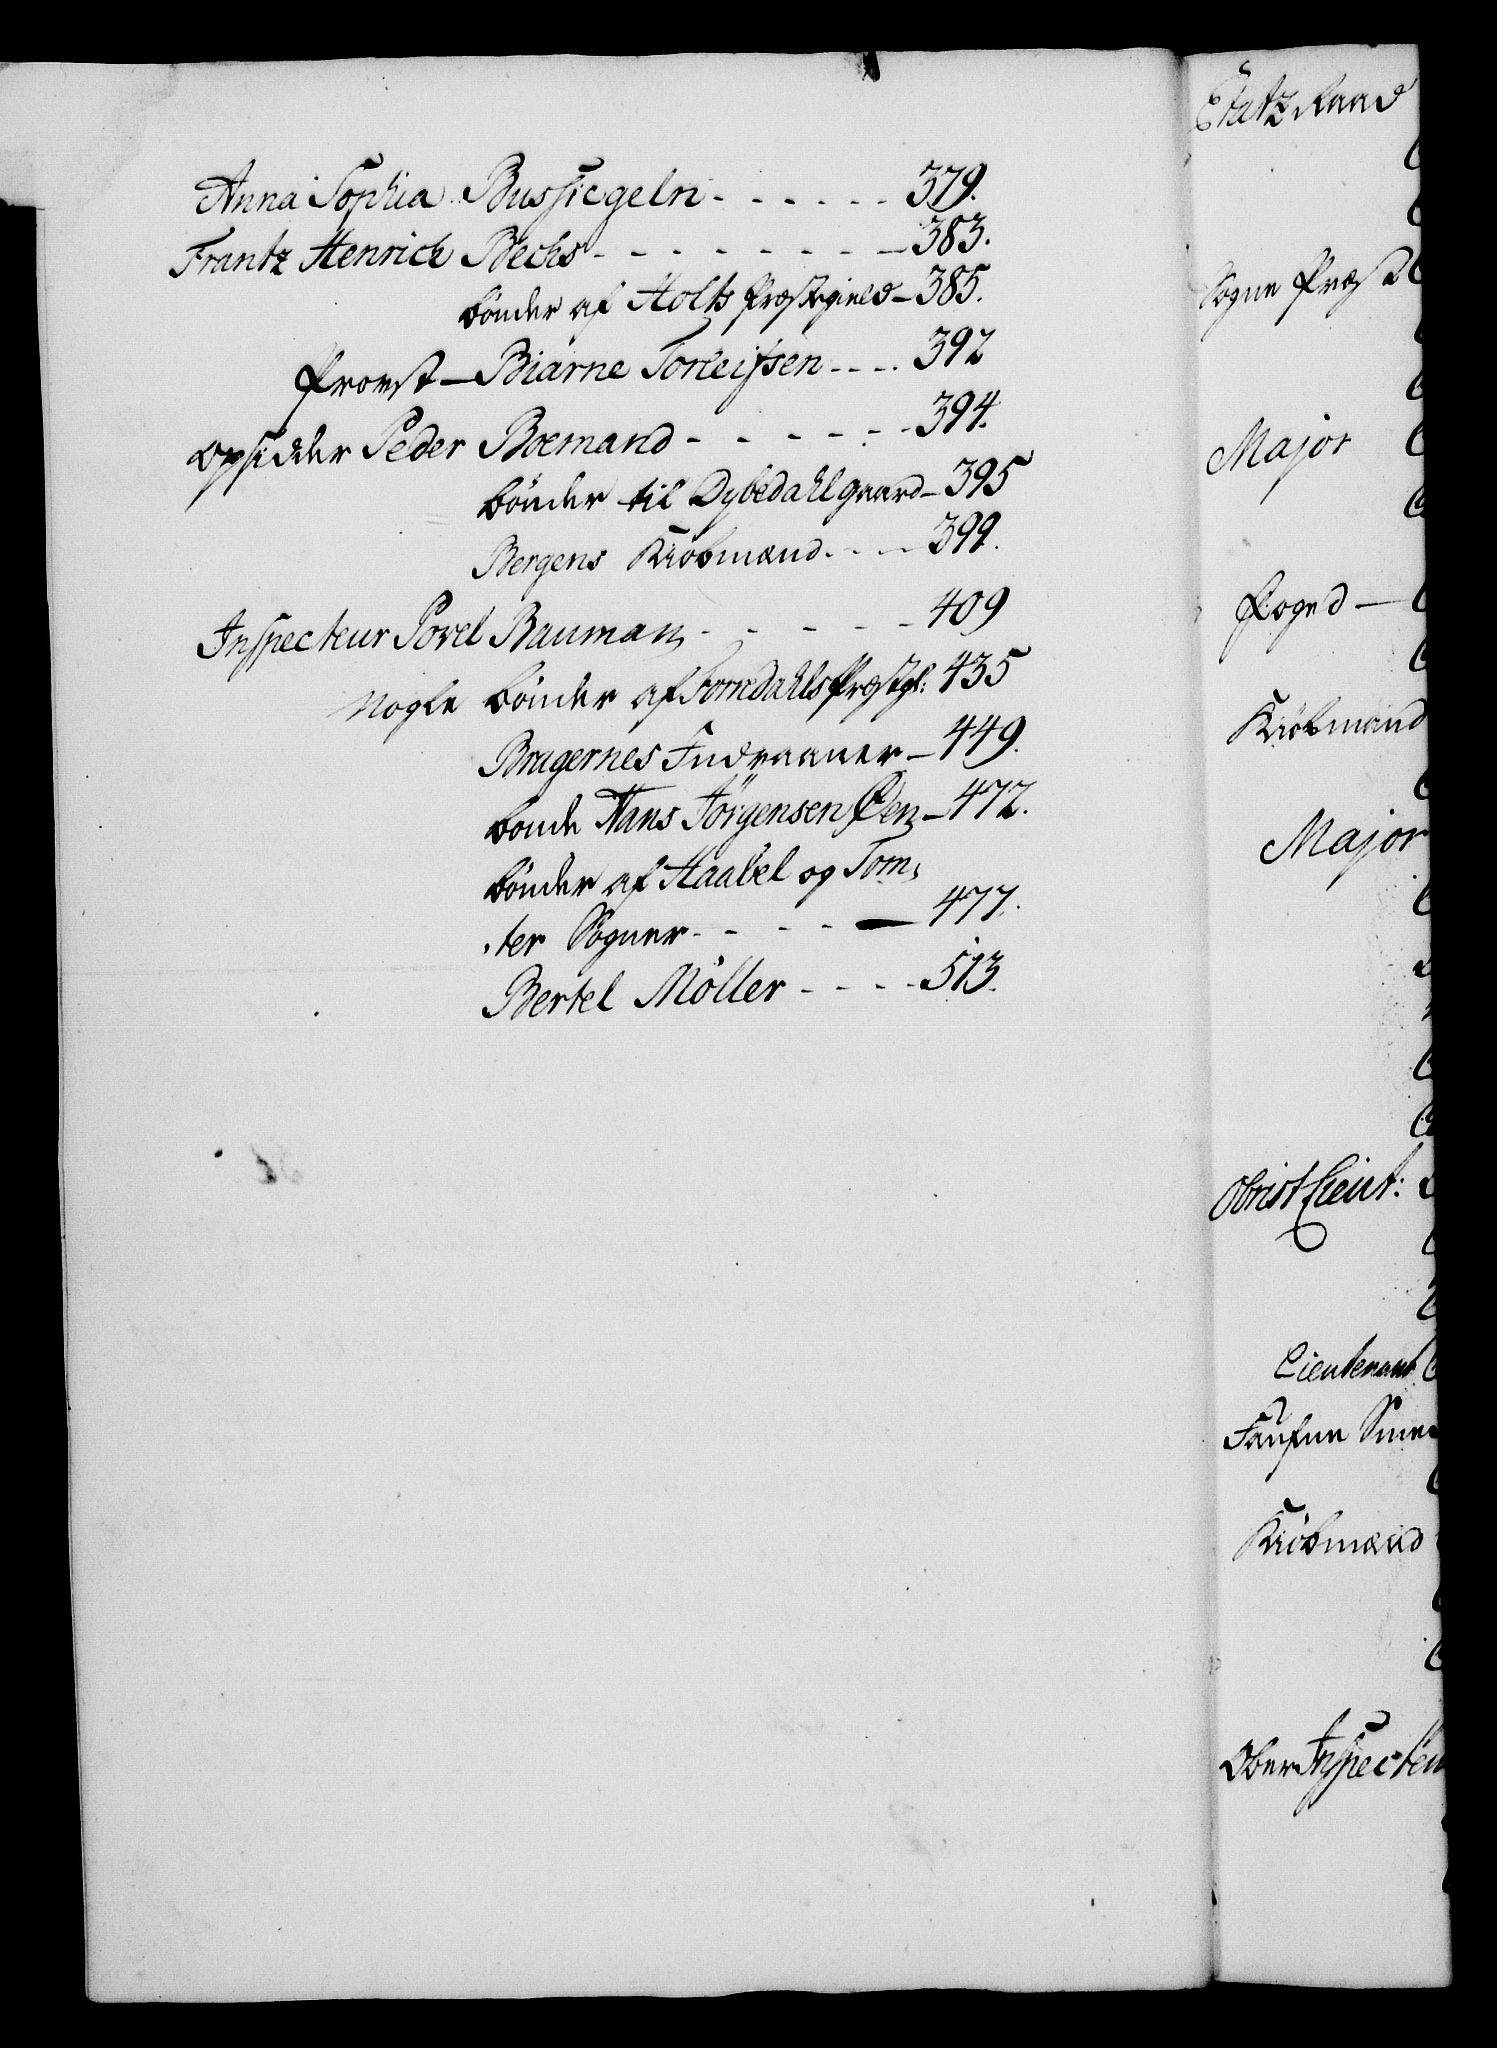 Anna Sophia Bussiegeln - - - - - - 379.
Frantz Henrich Bechs - - - - - - - - 383.
bönder af Holts Præstegield - 385.
Provst - Biarne Torleifsen - - - . 392
Opsidder Peder Boemand - - - - - - 394.
bönder til Dybedahl gaard - 395
Bergens Kiöbmænd. - - - 399.
Inspecteur Povel Bauman - - - - - 409
Nogle bönder af Præstgl: 435
Bragernes Indvaaner - 449.
bonde Hans Jörgensen Öen - 472.
bönder af Haabel og Tom,
,ter Sogner - - - - - 477.
Bertel Möller - - - - 513.
Etatz Raad
Sogne Præst
Major
Foged -
Kiöbmand
Major
Obrist Lieut:
Lieutenant
Kiöbmænd
Ober Inspecteu